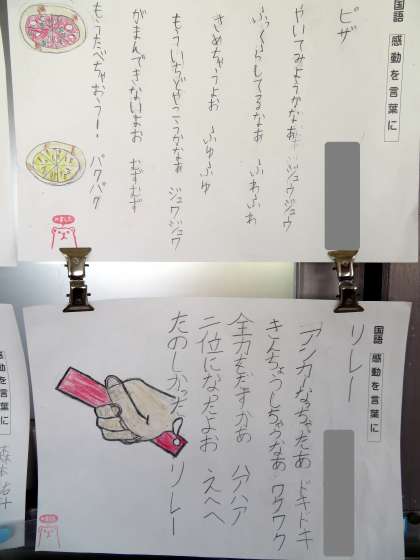 国語 感動を言葉に
ピザ
やいてみようかなあ ジュウジュウ
ふっくらしてるなあ ふわふわ
さめちゃうよお ふゆふゆ
もういちどやこうかなあ ジュワジュウ
がまんできないよお むずむず
もうたべちゃおう！ パクパク
国語 感動を言葉に
リレー
アンカーなっちゃたあ ドキドキ
きんちょうしちゃうなあ ワクワク
全力をだすかあ ハアハア
二位になったよお えへへ
たのしかった リレー
感動を言葉に